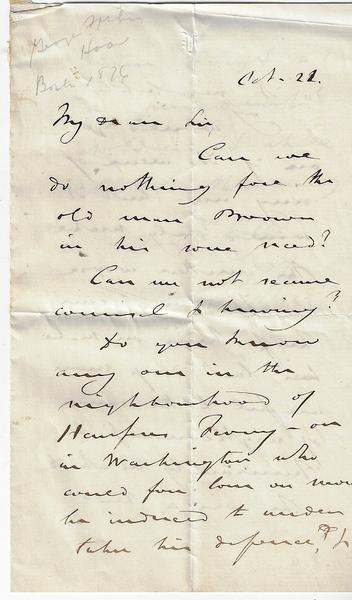 Oct. 21.
My dear Sir,
Can we
do nothing for the
old man Brown
in his sore need?
Can we not secure
counsel & hearing?
Do you know
any one in the
neighbourhood of
Harpers Ferry – or
in Washington who
could for love or money
be induced to under
take his defence,